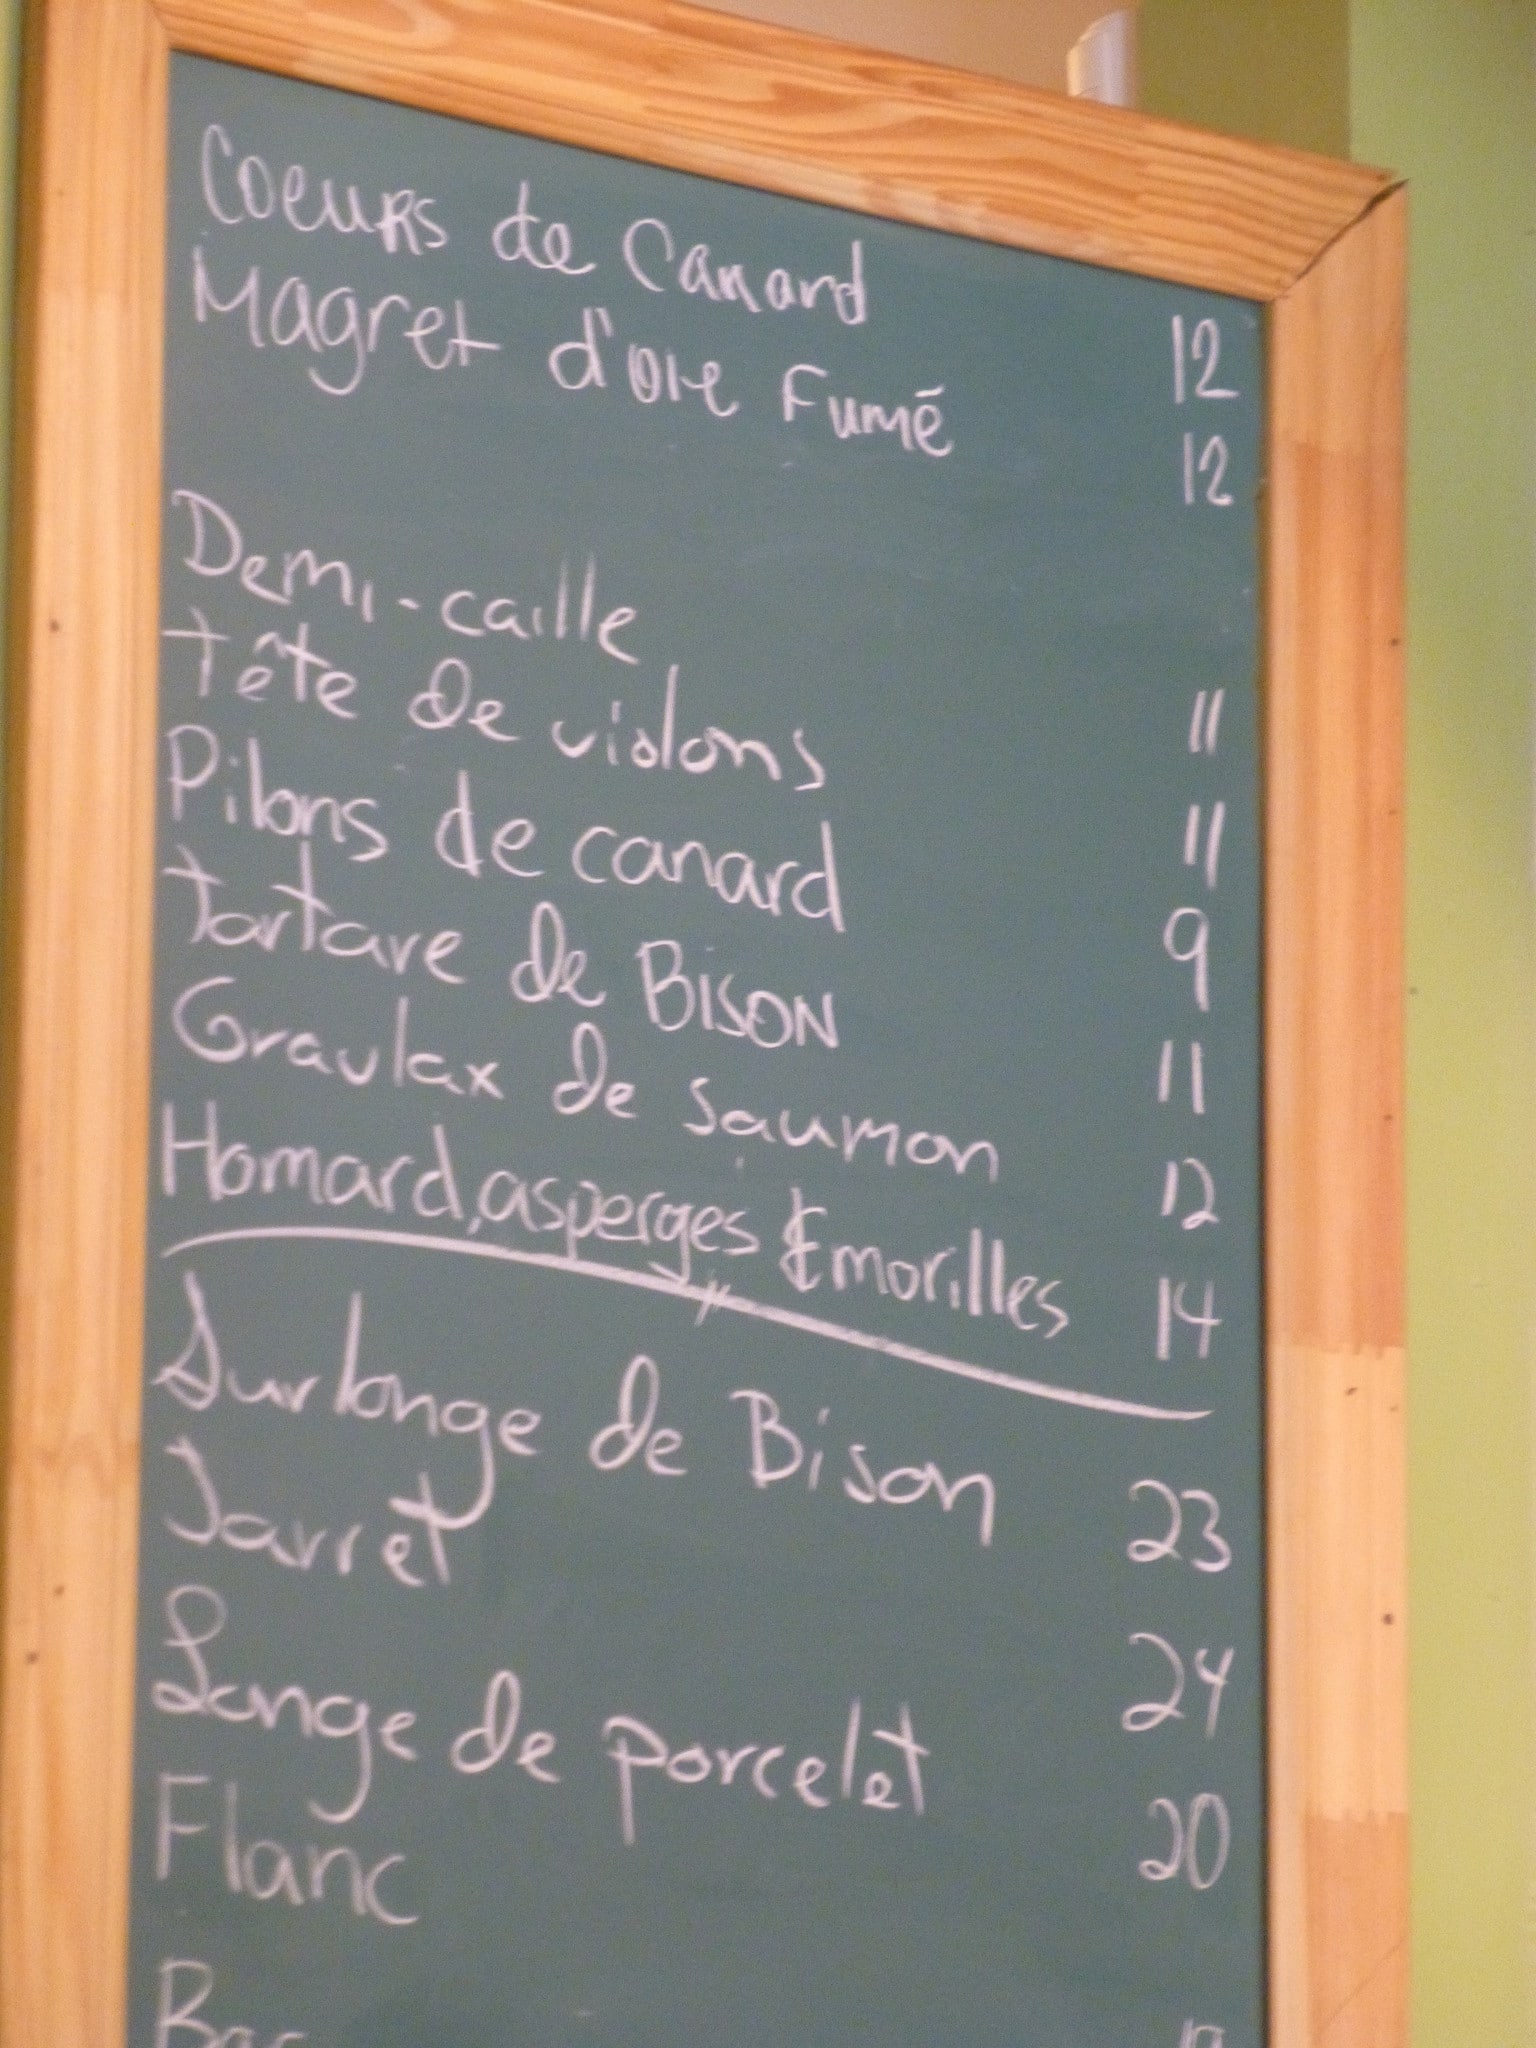 Coeurs de Canard 12
Magret d'oie Fumé 12
Demi-caille 11
Tête de violons 11
Pilons de canard 9
Tartare de Bison 11
Gravlax de saumon 12
Homard, asperges & morilles 14
Surlonge de Bison 23
Jarret 24
Longe de porcelet 20
Flanc